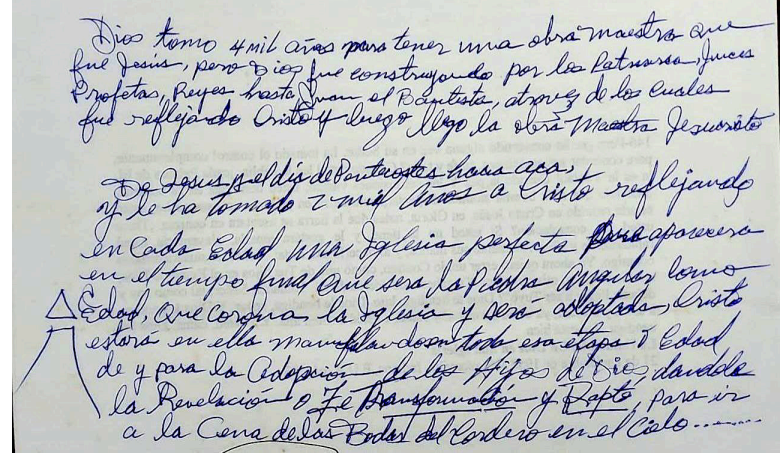 Dios tomo 4 mil años para tener una obra maestra que
fue Jesús, pero Dios fue construyendo por los Patriarcas, Jueces
Profetas, Reyes hasta Juan el Bautista, atravez de los cuales
fue reflejando Cristo y luego llego la obra Maestra Jesucristo
De Jesus y el dia de Pentecostes hacia aca,
y le ha tomado 2 mil Años a Cristo reflejando
en Cada Edad una Iglesia perfecta para aparecera
en el tiempo final que sera la Piedra Angular como
Edad, que corona la Iglesia y será adoptada, Cristo
estará en ella en toda esa etapa o Edad
de y para la Adopcion de los Hijos de Dios, dandole
la Revelacion o Fe Transformación y Rapto, para ir
a la Cena de las Bodas del Cordero en el Cielo........